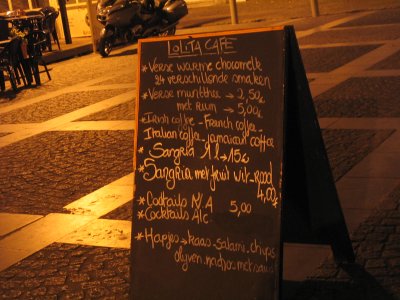 LOLITA CAFE
* Verse warme chocomelk
24 verschillende smaken
* Verse muntthee → 2,50€
met rum → 5,00€
* Irish coffee - French coffee -
Italian coffee, Jamaican coffee
* Sangria 1l → 15€
* Sangria met fruit wit-rood
4,00€
* Cocktails N/A 5,00
* Cocktails Alc
* Hapjes → kaas - salami, chips
olijven, nacho's met saus